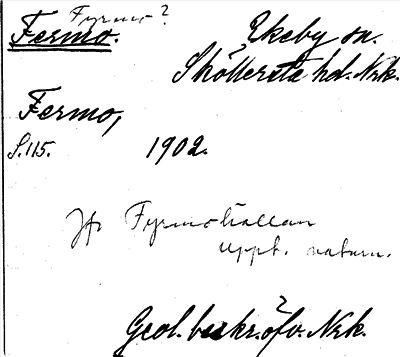 Fyrmo?
Fermo. Ekeby sn.
Sköllersta hd. Nrk.
Fermo,
S. 115. 1902.
Jfr Fyrmokällan
uppt. natum.
Geol. beskr. öfv. Nrk.